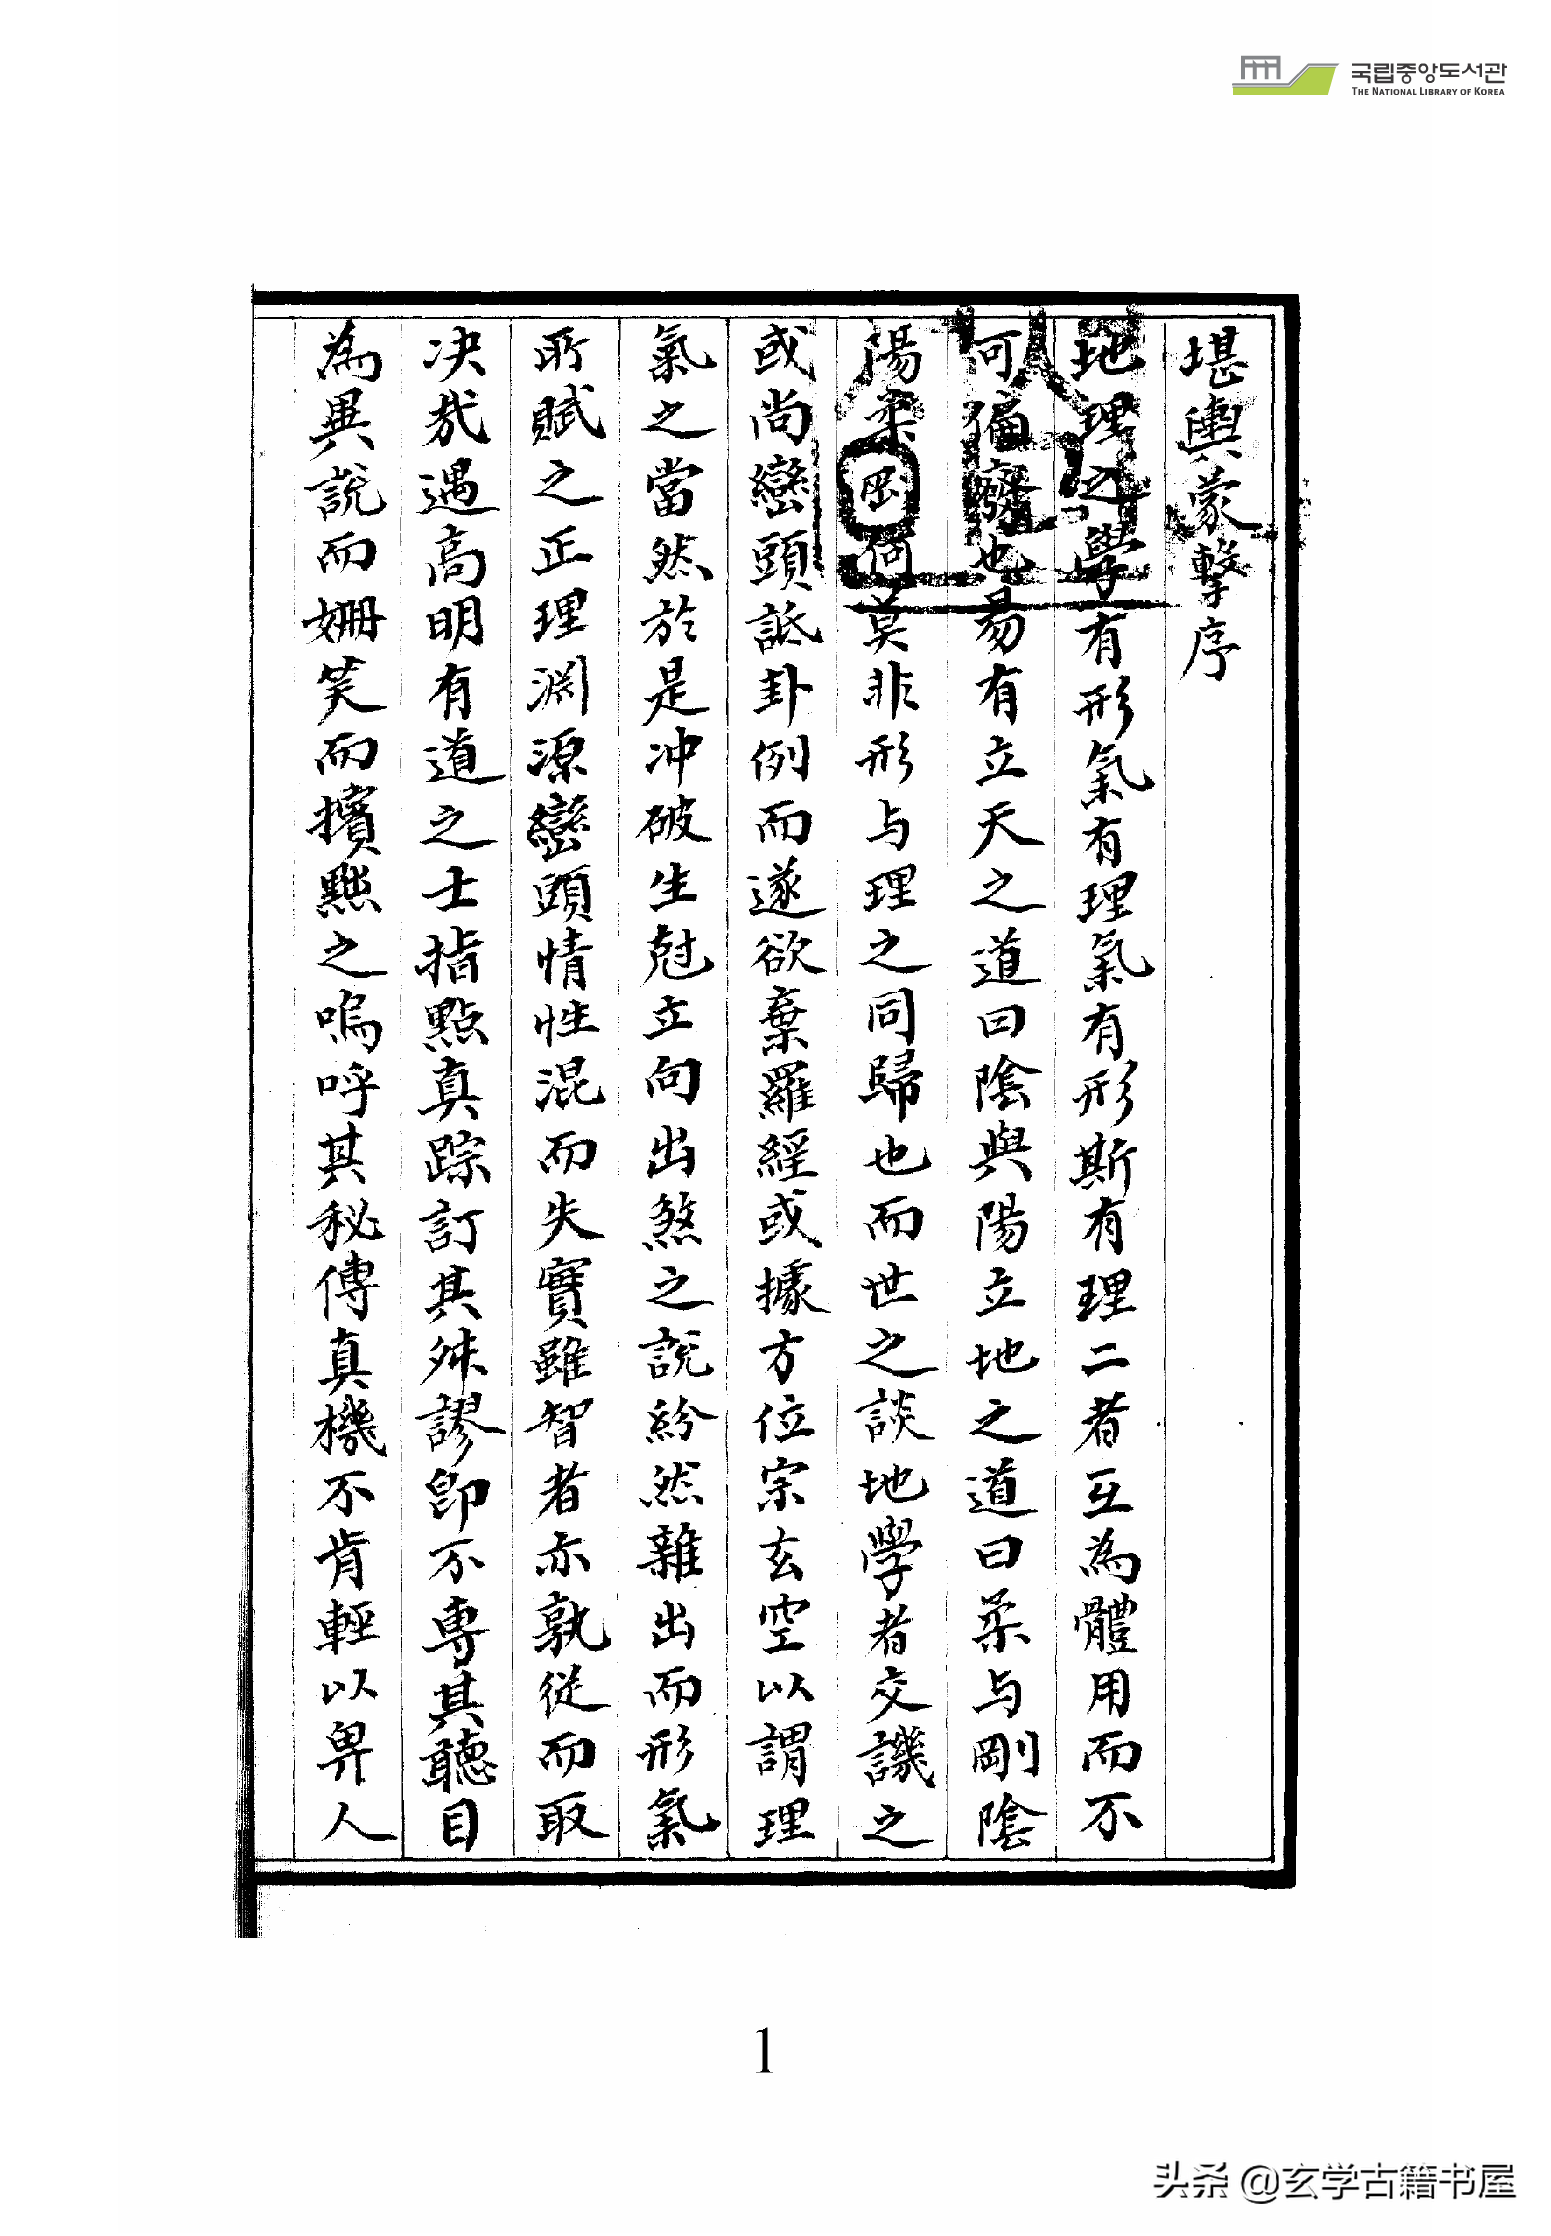 국립중앙도서관
THE NATIONAL LIBRARY OF KOREA
堪輿蒙擊序
地理之學有形氣有理氣有形斯有理二者互為體用而不
可偏廢也易有立天之道曰陰與陽立地之道曰柔与剛陰
陽柔罡何莫非形与理之同歸也而世之談地學者交譏之
或尚巒頭詆卦例而遂欲棄羅經或據方位宗玄空以謂理
氣之當然於是冲破生尅立向出煞之說紛然雜出而形氣
所賦之正理淵源巒頭情性混而失實雖智者亦孰從而取
决哉遇高明有道之士指點真踪訂其舛謬卽不專其聽目
為異說而姍笑而擯黜之嗚呼其秘傳真機不肯輕以畀人
1
头条 @玄学古籍书屋